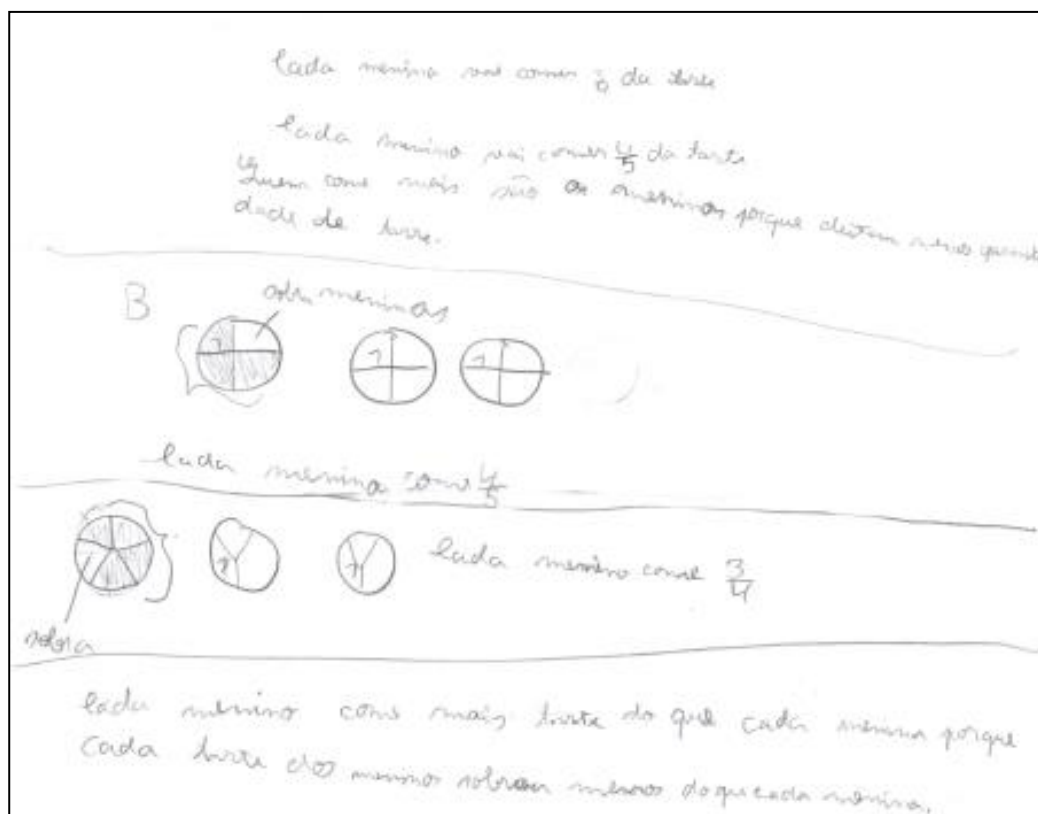 Cada menina vai comer da tarte
Cada menino vai comer 4/5 da tarte
Quem come mais são os meninos porque deitam menos quanti
dade de tarte.
B
sobra meninas
1 1 1
Cada menina come 4/5
1 1
Cada menino come 3/4
sobra
Cada menino come mais tarte do que cada menina porque
Cada tarte dos meninos sobram menos do que cada menina.